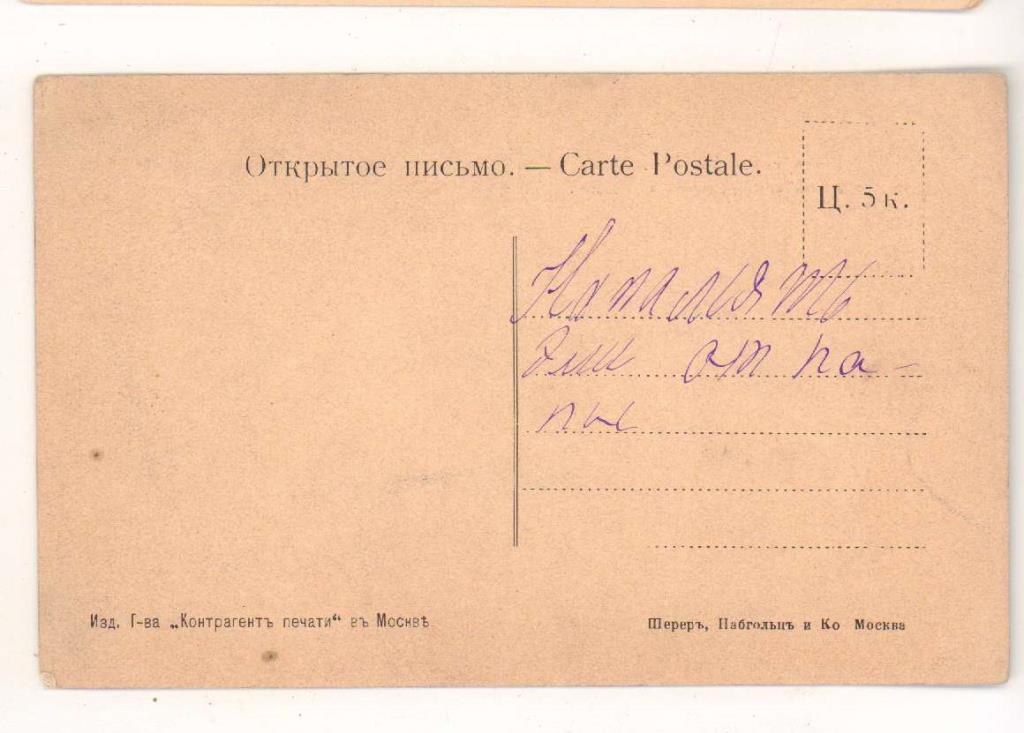 Открытое письмо. — Carte Postale.
Ц. 5 к.
На память
от па-
пы
Изд. Т-ва „Контрагентъ печати“ въ Москвѣ
Шереръ, Набгольцъ и Ко Москва